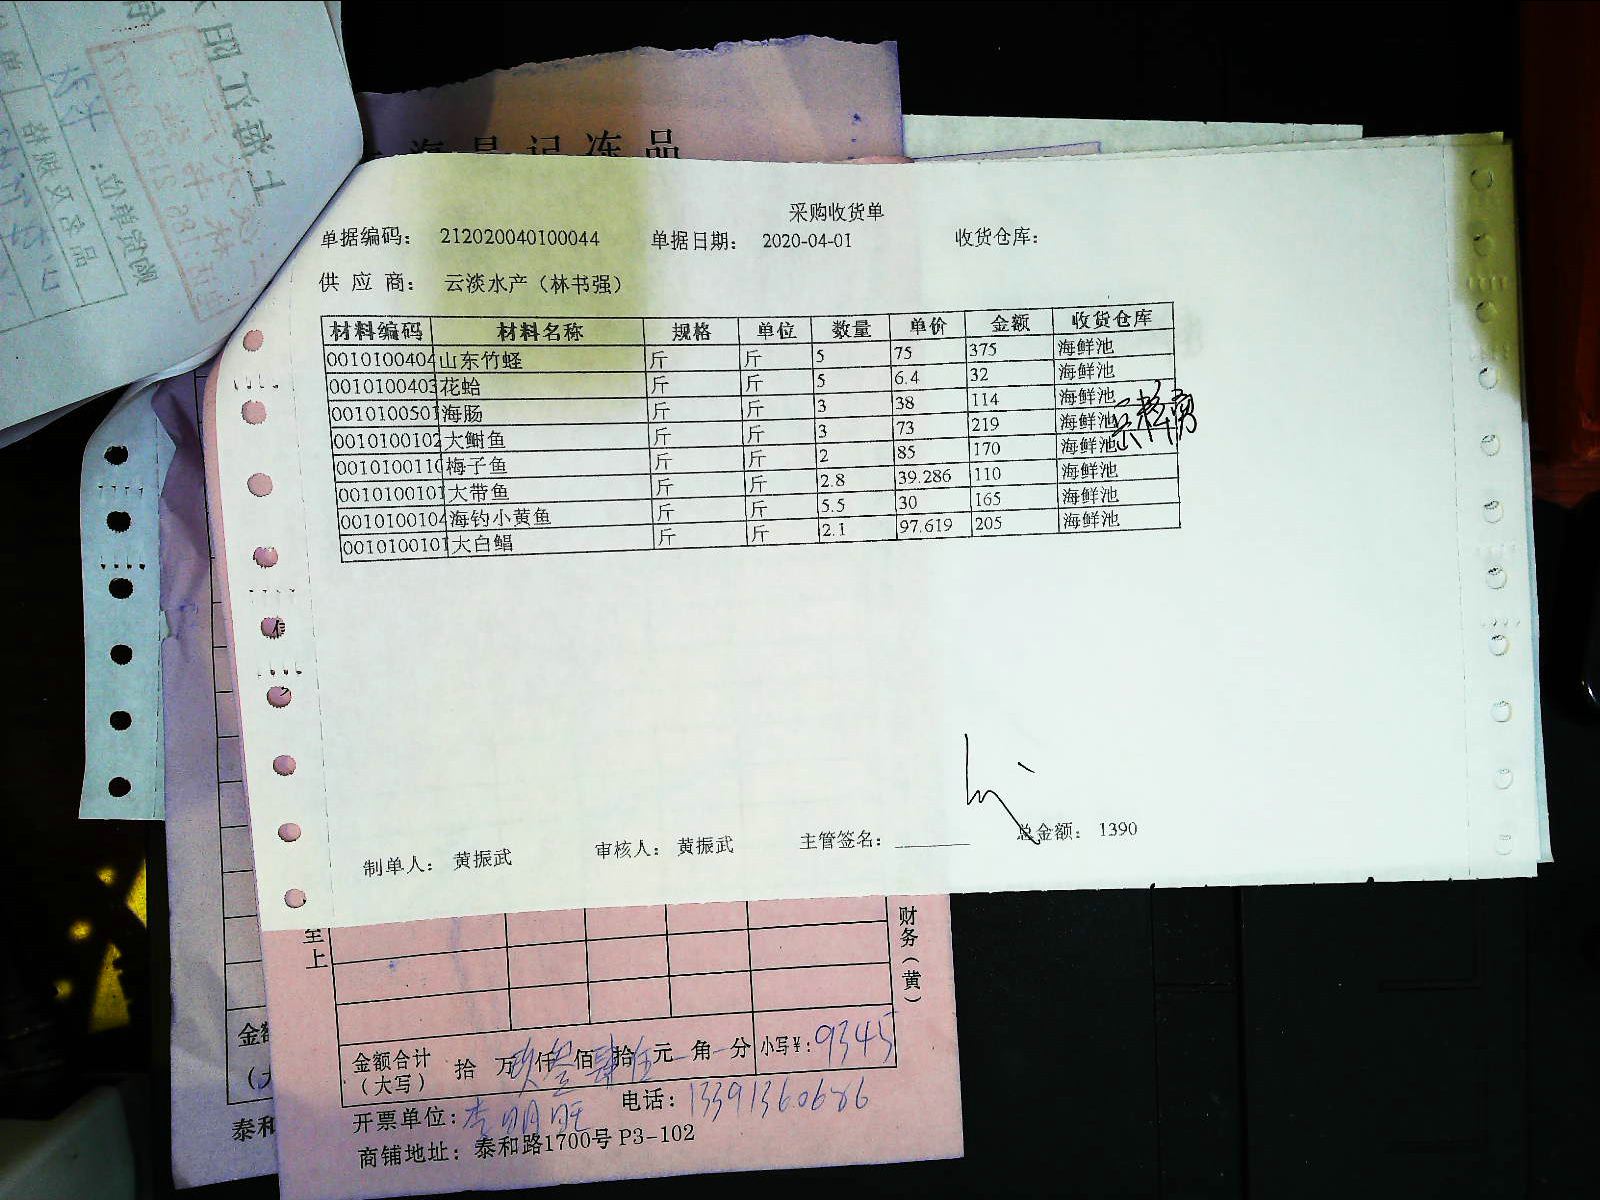 海昌记冻品
采购收货单
单据编码： 212020040100044 单据日期： 2020-04-01 收货仓库：
供 应 商： 云淡水产（林书强）
材料编码 材料名称 规格 单位 数量 单价 金额 收货仓库
0010100404 山东竹蛏 斤 斤 5 75 375 海鲜池
0010100403 花蛤 斤 斤 5 6.4 32 海鲜池
0010100501 海肠 斤 斤 3 38 114 海鲜池
0010100102 大鲥鱼 斤 斤 3 73 219 海鲜池
001010011 梅子鱼 斤 斤 2 85 170 海鲜池
0010100101 大带鱼 斤 斤 2.8 39.286 110 海鲜池
0010100104 海钓小黄鱼 斤 斤 5.5 30 165 海鲜池
0010100101 大白鲳 斤 斤 2.1 97.619 205 海鲜池
制单人： 黄振武 审核人： 黄振武 主管签名： 总金额： 1390
至上
财务（黄）
金额合计（大写） 拾 万玖仟叁佰肆拾伍元 角 分 小写￥：9345
开票单位：李明旺 电话：13391360686
商铺地址：泰和路1700号P3-102
泰和